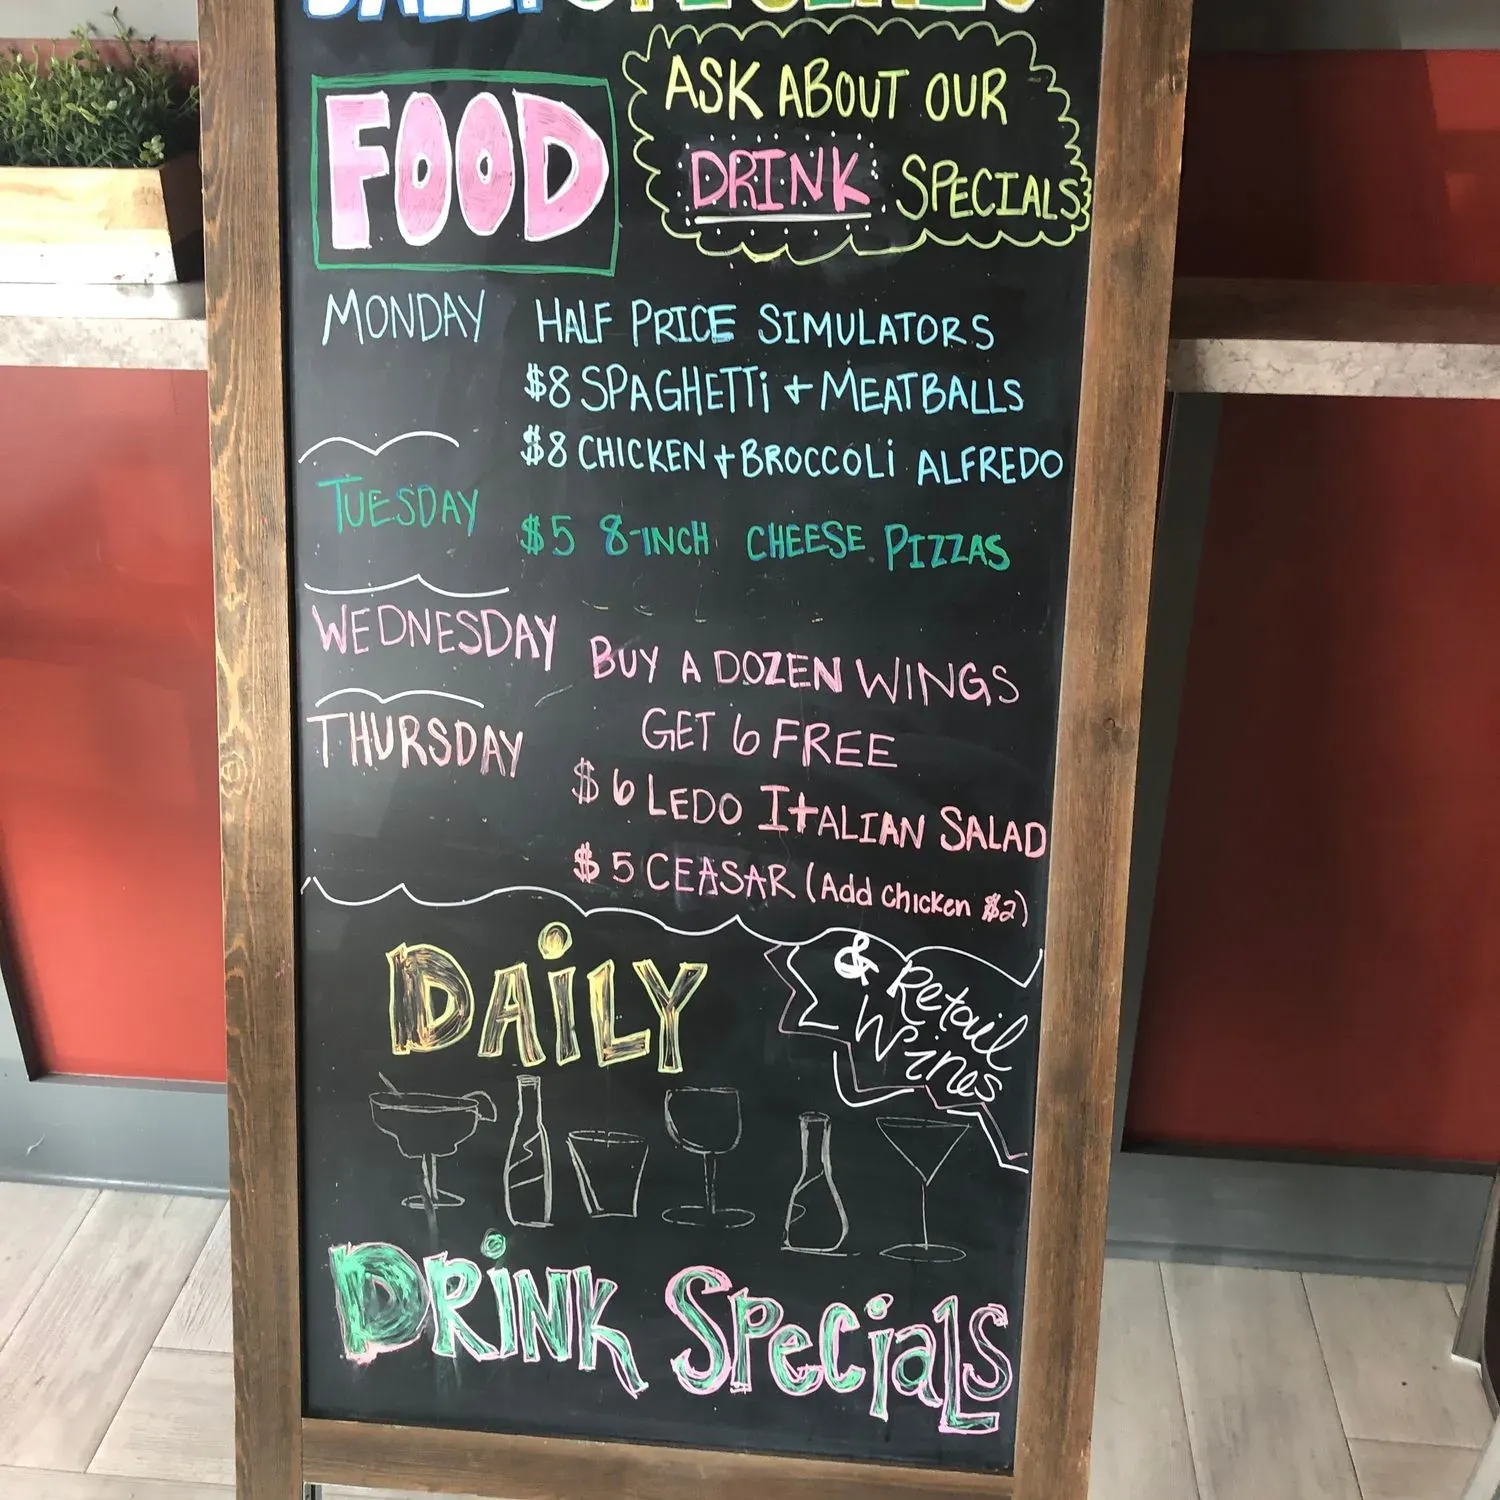 DAILY SPECIALS
FOOD
ASK ABOUT OUR
DRINK SPECIALS
MONDAY HALF PRICE SIMULATORS
$8 SPAGHETTi + MEATBALLS
$8 CHICKEN + BROCCOLi ALFREDO
TUESDAY $5 8-INCH CHEESE PIZZAS
WEDNESDAY BUY A DOZEN WINGS
GET 6 FREE
THURSDAY
$6 LEDO ITALIAN SALAD
$5 CEASAR (Add chicken $2)
DAiLY
& Retail
Wines
DRiNK SPeCiaLS